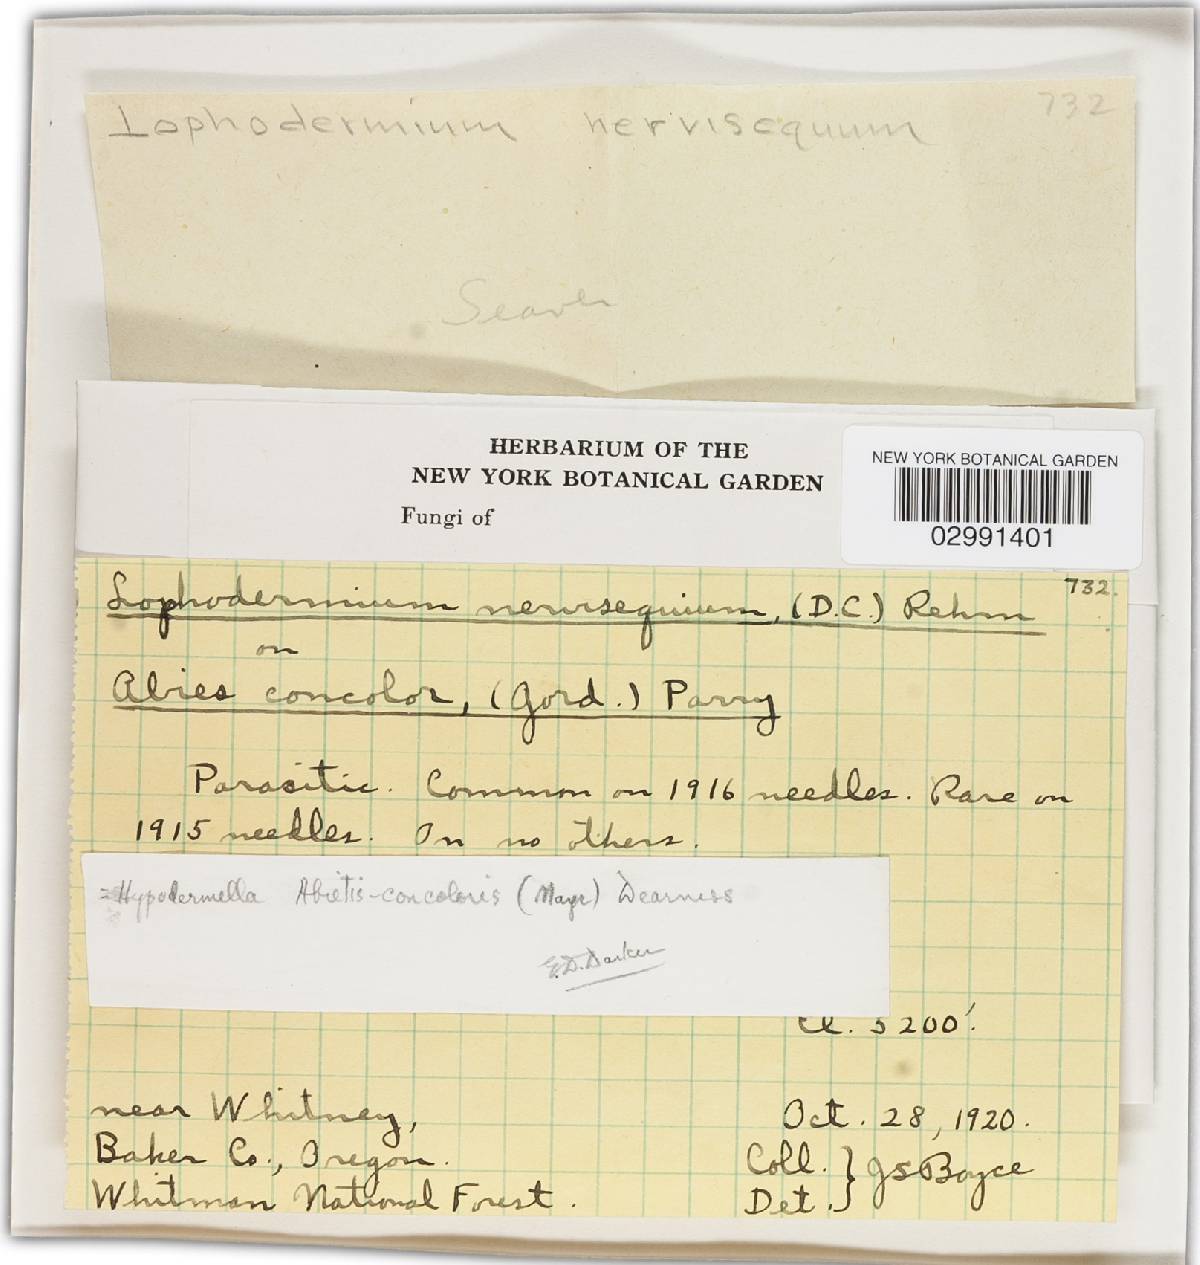 Lophodermium nervisequum 732
Seaver
HERBARIUM OF THE
NEW YORK BOTANICAL GARDEN
Fungi of
NEW YORK BOTANICAL GARDEN
02991401
732.
Lophodermium nervisequium, (D.C.) Rehm
on
Abies concolor, (Gord.) Parry
Parasitic. Common on 1916 needles. Rare on
1915 needles. On no others.
=Hypodermella Abietis-concoloris (Mayr) Dearness
G.D. Darker
El. 5200'.
near Whitney, Oct. 28, 1920.
Baker Co., Oregon. Coll. } J S Boyce
Whitman National Forest. Det. }